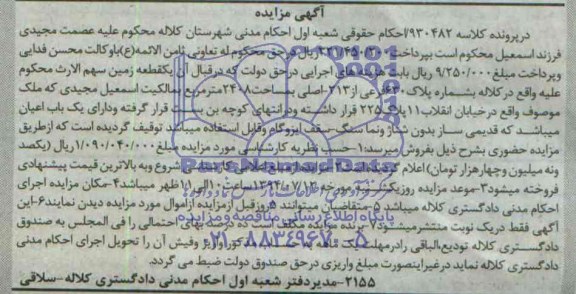 آگهی مزایده
درپرونده کلاسه ۹۳۰۴۸۲/احکام حقوقی شعبه اول احکام مدنی شهرستان کلاله محکوم علیه عصمت مجیدی
فرزند اسمعیل محکوم است بپرداخت ریال در حق محکوم له تعاونی ثامن الائمه(ع)باوکالت محسن فدایی
وپرداخت مبلغ ۹/۲۵۰/۰۰۰ ریال بابت هزینه های اجرایی درحق دولت که درقبال آن یکقطعه زمین سهم الارث محکوم
علیه واقع در کلاله بشماره پلاک فرعی از۲۱۳-اصلی بمساحت۲۴۰۸مترمربع بمالکیت اسمعیل مجیدی که ملک
موصوف واقع درخیابان انقلاب۱۱پلاک۲۲۵ قرار داشته ودرانتهای کوچه بن بست قرار گرفته ودارای یک باب اعیان
میباشد که قدیمی ساز بدون شناژ ونما سنگ-سقف ایزوگام وقابل استفاده میباشد توقیف گردیده است که ازطریق
مزایده حضوری بشرح ذیل بفروش میرسد:۱-حسب نظریه کارشناسی مورد مزایده مبلغ۱/۰۹۰/۰۴۰/۰۰۰ریال (یکصد
ونه میلیون وچهارهزار تومان) اعلام گردیده است۲-مزایده از مبلغ اعلامی کارشناسی شروع وبه بالاترین قیمت پیشنهادی
فروخته میشود۳-موعد مزایده روز مورخه ۱۳۹۴ ساعت۱۰الی۱۱ظهر میباشد۴-مکان مزایده اجرای
احکام مدنی دادگستری کلاله میباشد ۵-متقاضیان میتوانند ۵روزقبل ازمزایده ازاموال مورد مزایده دیدن نمایند۶-این
آگهی فقط دریک نوبت منتشرمیشود۷-برنده مزایده مکلف است ده درصد بهای احتمالی را فی المجلس به صندوق
دادگستری کلاله تودیع،الباقی رادرمهلت یک ماهه به وفیش آن را تحویل اجرای احکام مدنی
دادگستری کلاله نماید درغیراینصورت مبلغ واریزی درحق صندوق دولت ضبط می گردد.
۲۱۵۵-مدیردفتر شعبه اول احکام مدنی دادگستری کلاله-سلاقی
پایگاه اطلاع رسانی مناقصه و مزایده
۰۲۱-۸۸۳۴۹۶۷۰-۵